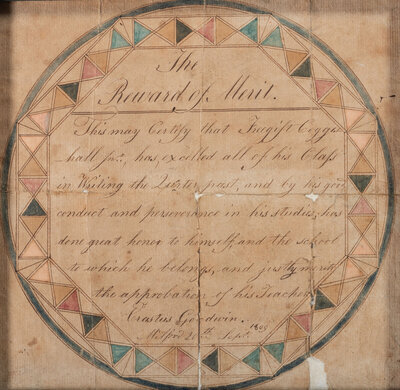 The
Reward of Merit.
This may Certify that Freegift Cogges
hall Jun.r, has excelled all of his Class
in Writing the Quarter past, and by his good
conduct and perseverance in his studies, has
done great honor to himself, and the school
to which he belongs, and justly merits
the approbation of his Teacher
Erastus Goodwin.
Milford 26th Sept. 1809